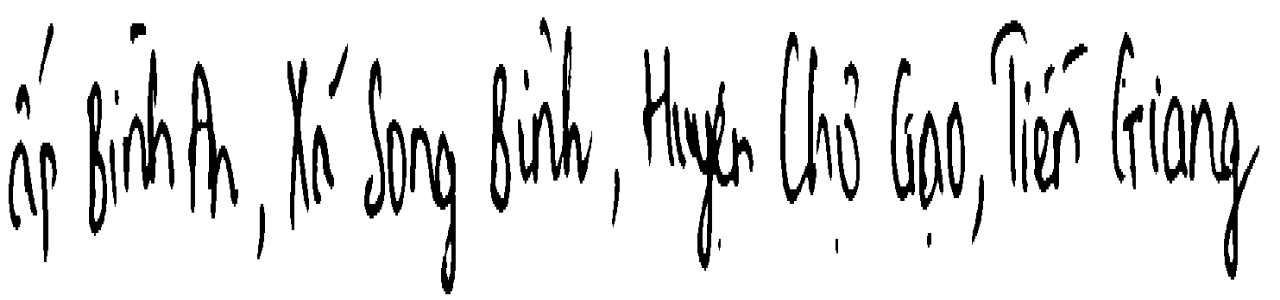 ấp Bình An, Xã Song Bình, Huyện Chợ Gạo, Tiền Giang